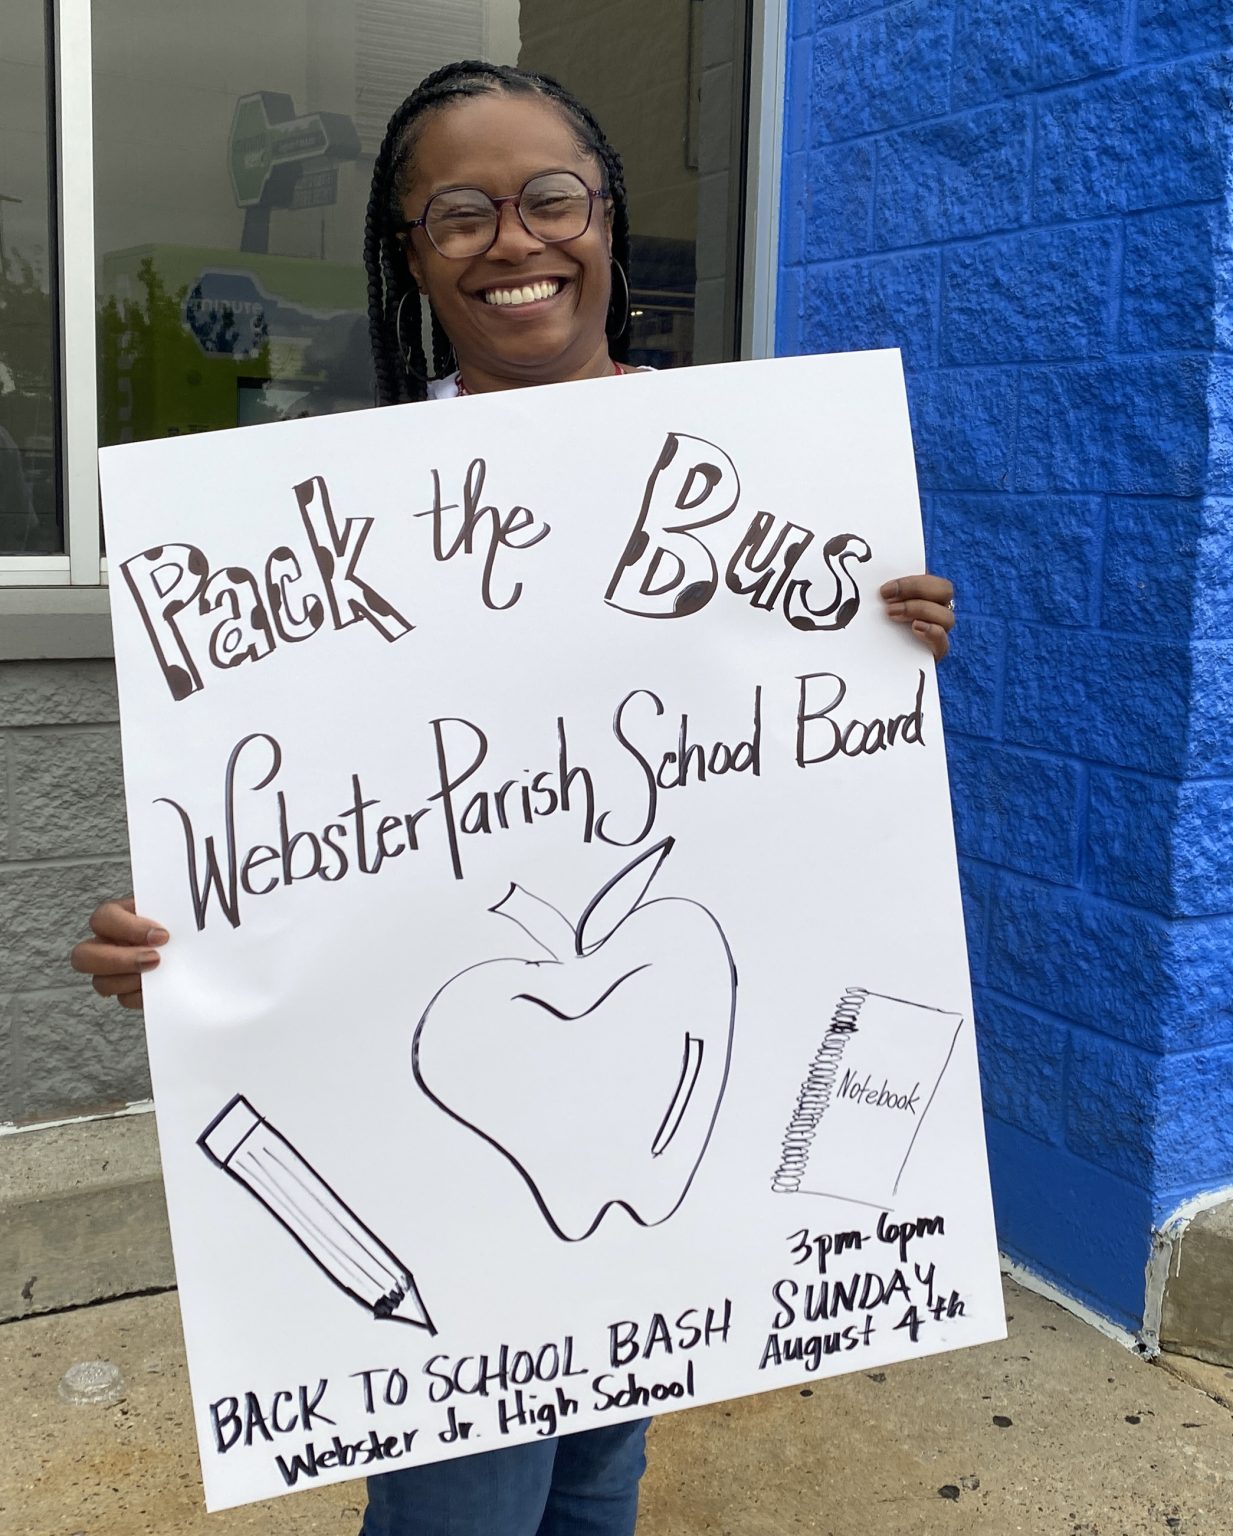 Pack the Bus
Webster Parish School Board
Notebook
3pm-6pm
SUNDAY
August 4th
BACK TO SCHOOL BASH
Webster Jr. High School